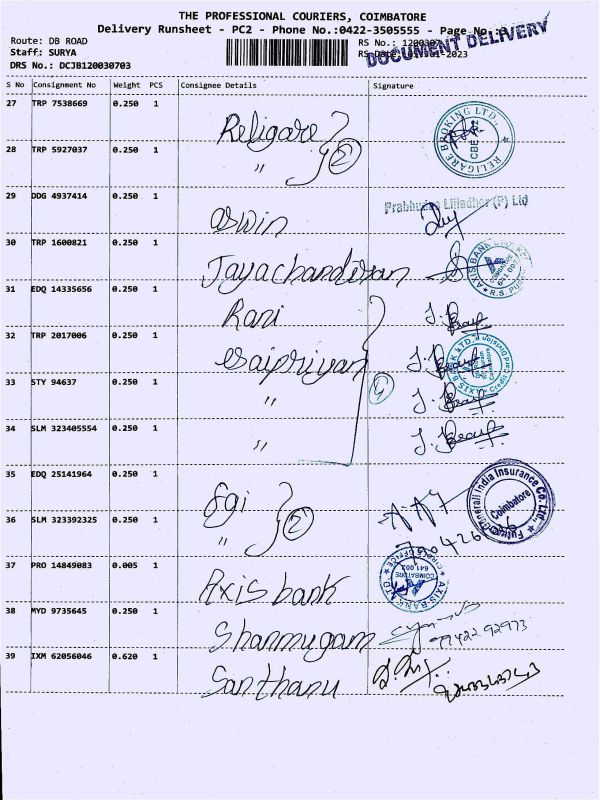 THE PROFESSIONAL COURIERS, COIMBATORE
Delivery Runsheet - PC2 - Phone No.:0422-3505555 - Page No.:
DOCUMENT DELIVERY
Route: DB ROAD
Staff: SURYA
DRS No.: DCJB120030703
RS No.:
RS Date: 2023
S No Consignment No Weight PCS Consignee Details Signature
27 TRP 7538669 0.250 1 Religare
RELIGARE BROKING LTD.
CBE
28 TRP 5927037 0.250 1 " 2
29 DDG 4937414 0.250 1 aswin
Prabhudas Lilladher (P) Ltd
30 TRP 1600821 0.250 1 Jayachandiran
AXIS BANK
R.S. PURAM
31 EDQ 14335656 0.250 1 Rani
32 TRP 2017006 0.250 1 esaipriyan
33 STY 94637 0.250 1 " 4
34 SLM 323405554 0.250 1 "
35 EDQ 25141964 0.250 1 fgi
Generali India Insurance Co. Ltd.
Coimbatore
36 SLM 323392325 0.250 1 " 2
37 PRO 14849083 0.005 1 Axis bank
AXIS BANK LTD
CIRCLE OFFICE
COIMBATORE
641 002
38 MYD 9735645 0.250 1 Shanmugam
77422 92973
39 IXM 62056046 0.620 1 Santhanu